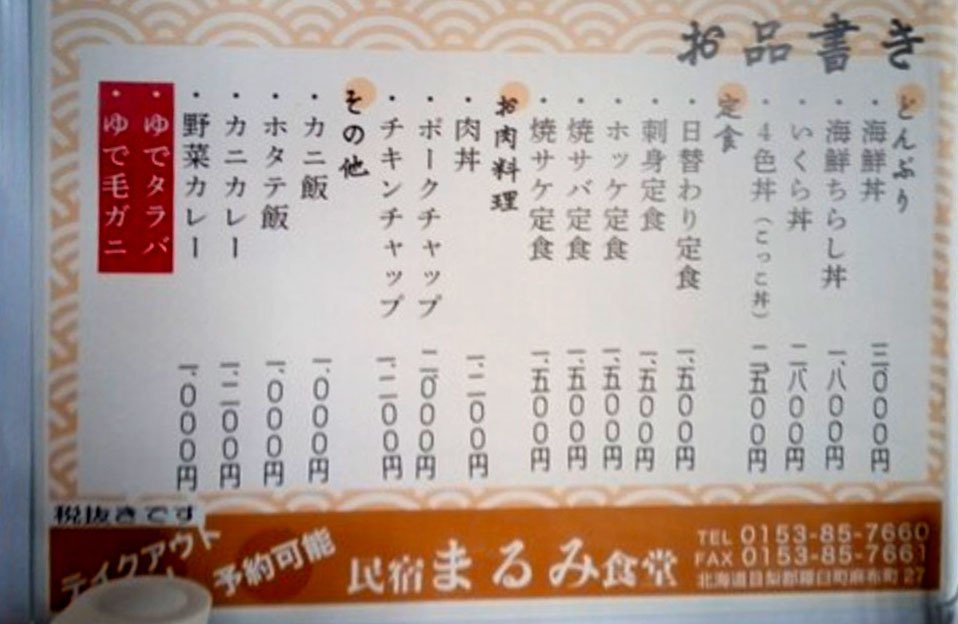 お品書き
どんぶり
・海鮮丼 三、000円
・海鮮ちらし丼 一、八00円
・いくら丼 二、八00円
・4色丼（とっこ丼） 二、五00円
定食
・日替わり定食 一、五00円
・刺身定食 一、五00円
・ホッケ定食 一、五00円
・焼サバ定食 一、五00円
・焼サケ定食 一、五00円
お肉料理
・肉丼 一、二00円
・ポークチャップ 二、000円
・チキンチャップ 一、二00円
その他
・カニ飯 一、000円
・ホタテ飯 一、000円
・カニカレー 一、二00円
・野菜カレー 一、000円
・ゆでタラバ
・ゆで毛ガニ
税抜きです
テイクアウト
予約可能
民宿まるみ食堂
TEL 0153-85-7660
FAX 0153-85-7661
北海道目梨郡羅臼町麻布町27